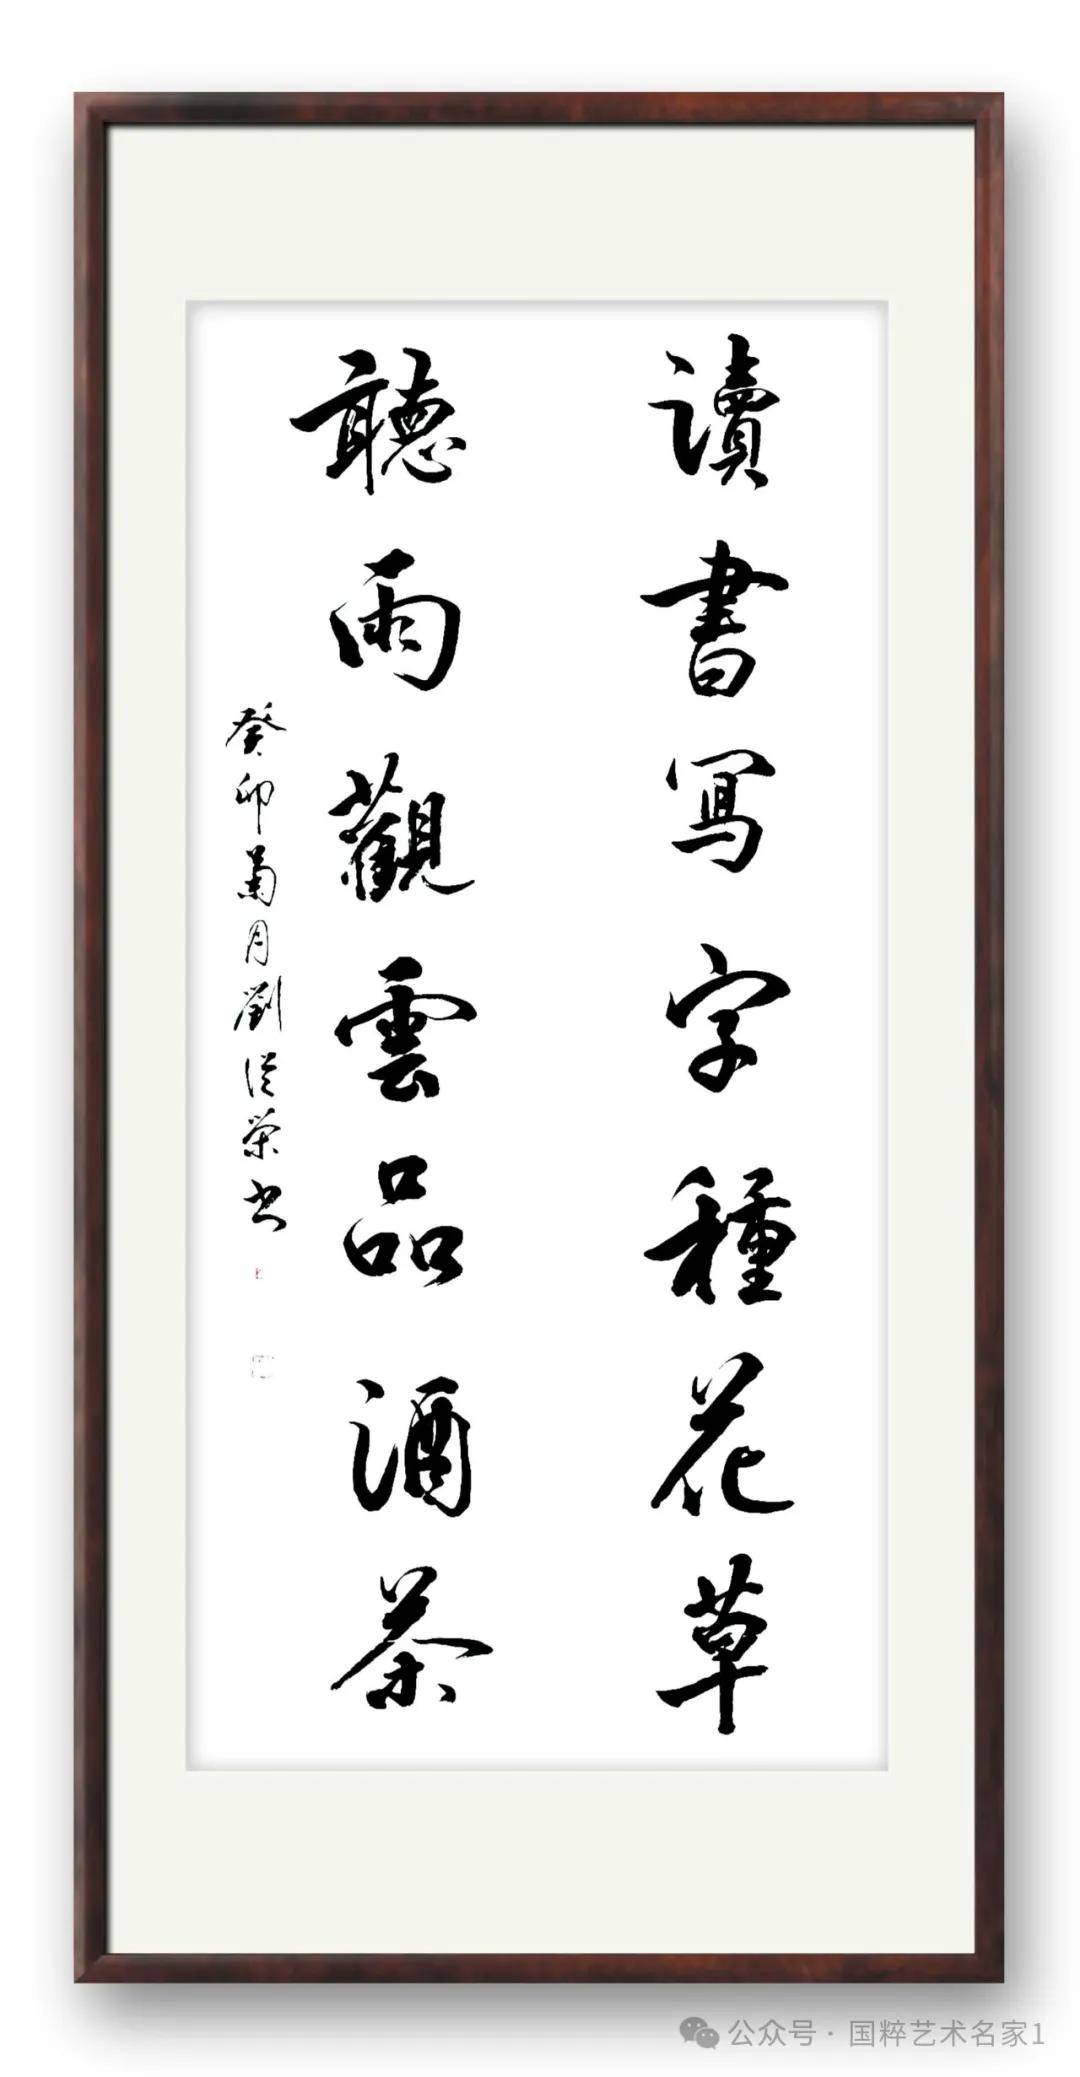 讀書寫字種花草
聽雨觀雲品酒茶
癸卯菊月劉從榮书
公众号·国粹艺术名家1